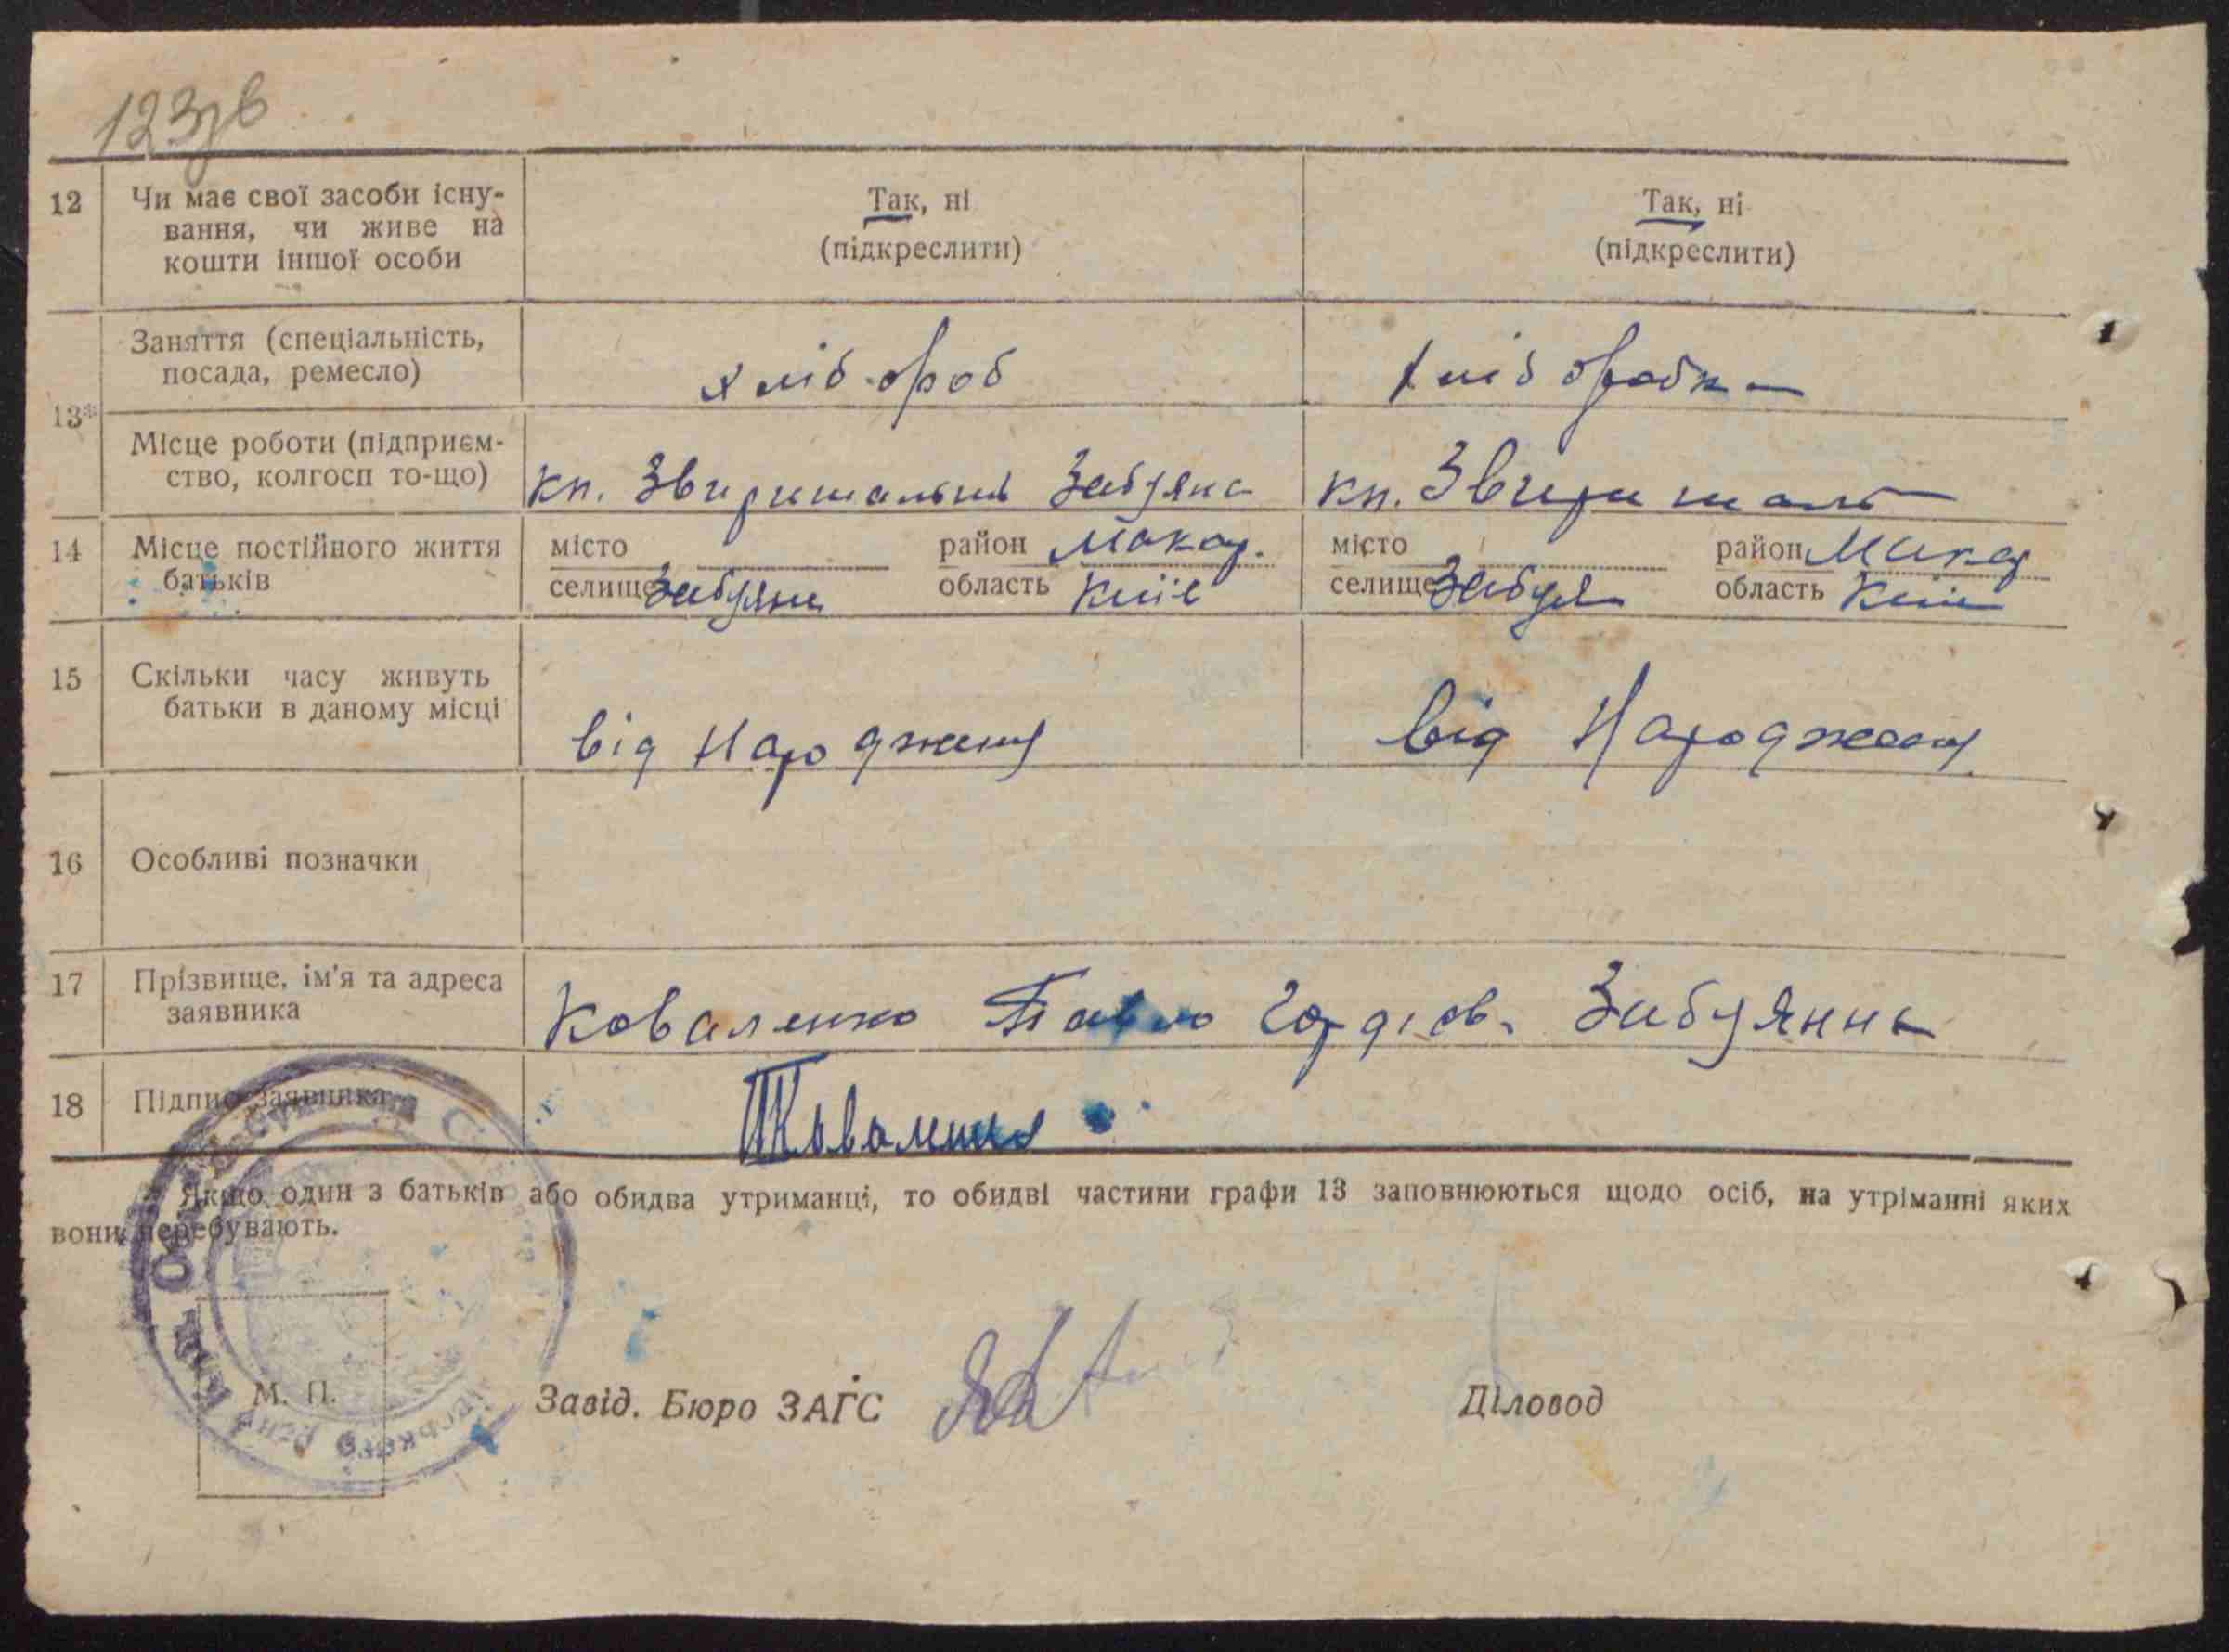 123зв
12 Чи має свої засоби існу-
вання, чи живе на
кошти іншої особи
Так, ні
(підкреслити)
Так, ні
(підкреслити)
13*
Заняття (спеціальність,
посада, ремесло)
хлібороб
хлібороб
Місце роботи (підприєм-
ство, колгосп то-що)
кп. Забуяна
кп.
14 Місце постійного життя
батьків
місто район Макар.
селище Забуяни область Київ
місто район Макар
селище Забуя область Київ
15 Скільки часу живуть
батьки в даному місці
від народження
від народження
16 Особливі позначки
17 Прізвище, ім'я та адреса
заявника
Коваленко Павло Гордіов. Забуянна
18 Підпис заявника
ПКоваленко
* Якщо один з батьків або обидва утриманці, то обидві частини графи 13 заповнюються щодо осіб, на утріманні яких
вони перебувають.
М. П.
Завід. Бюро ЗАГС
Діловод